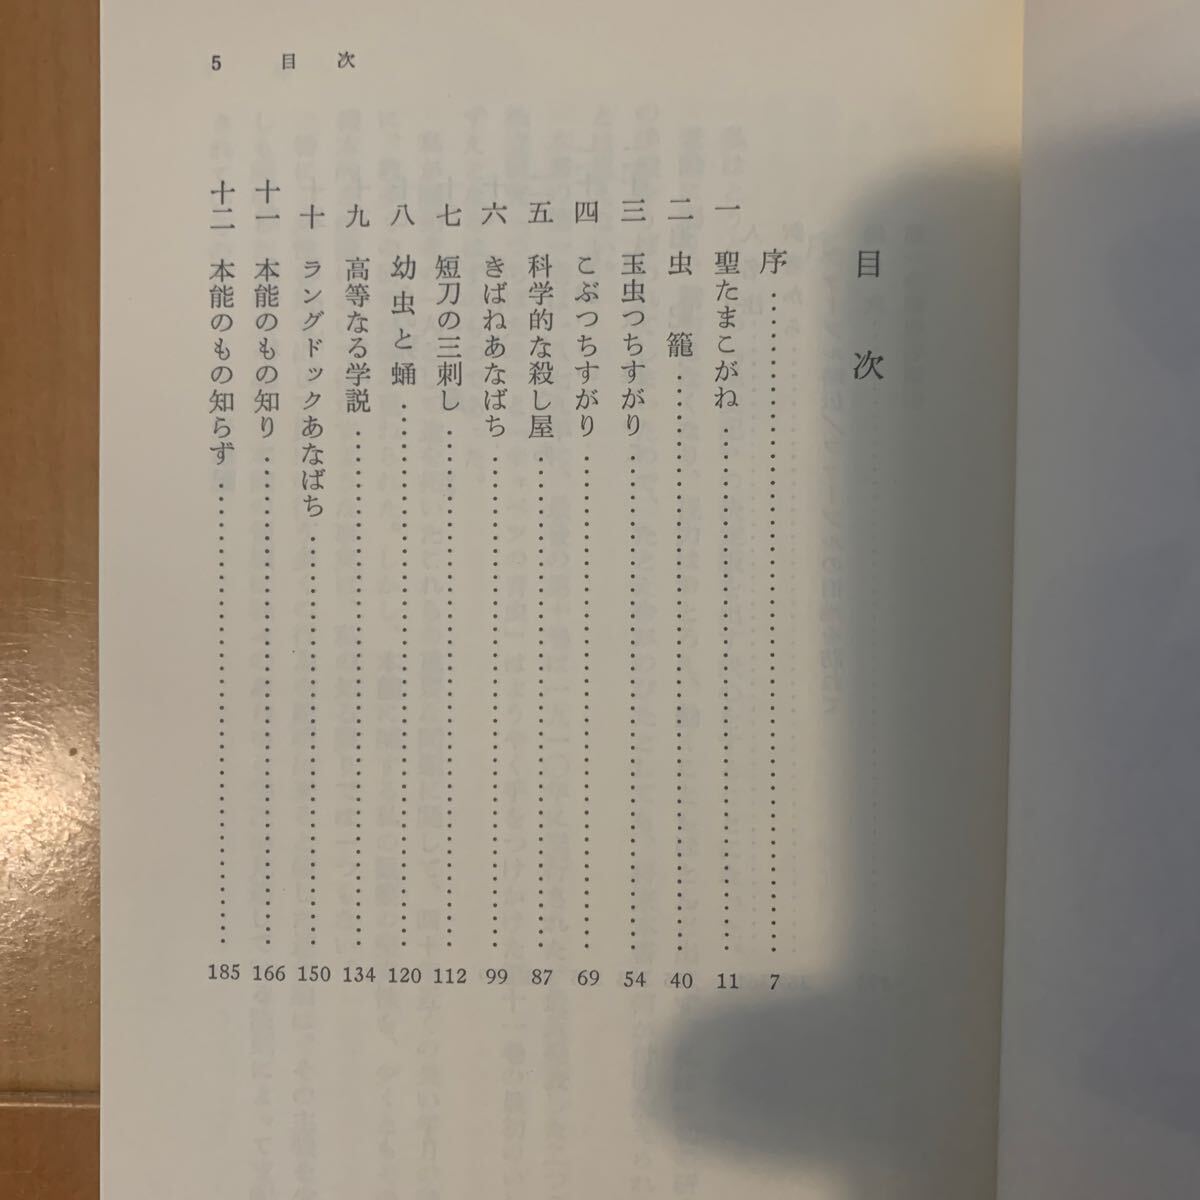 5 目次
目次
序 7
一 聖たまこがね 11
二 虫籠 40
三 玉虫つちすがり 54
四 こぶつちすがり 69
五 科学的な殺し屋 87
六 きばねあなばち 99
七 短刀の三刺し 112
八 幼虫と蛹 120
九 高等なる学説 134
十 ラングドックあなばち 150
十一 本能のもの知り 166
十二 本能のもの知らず 185